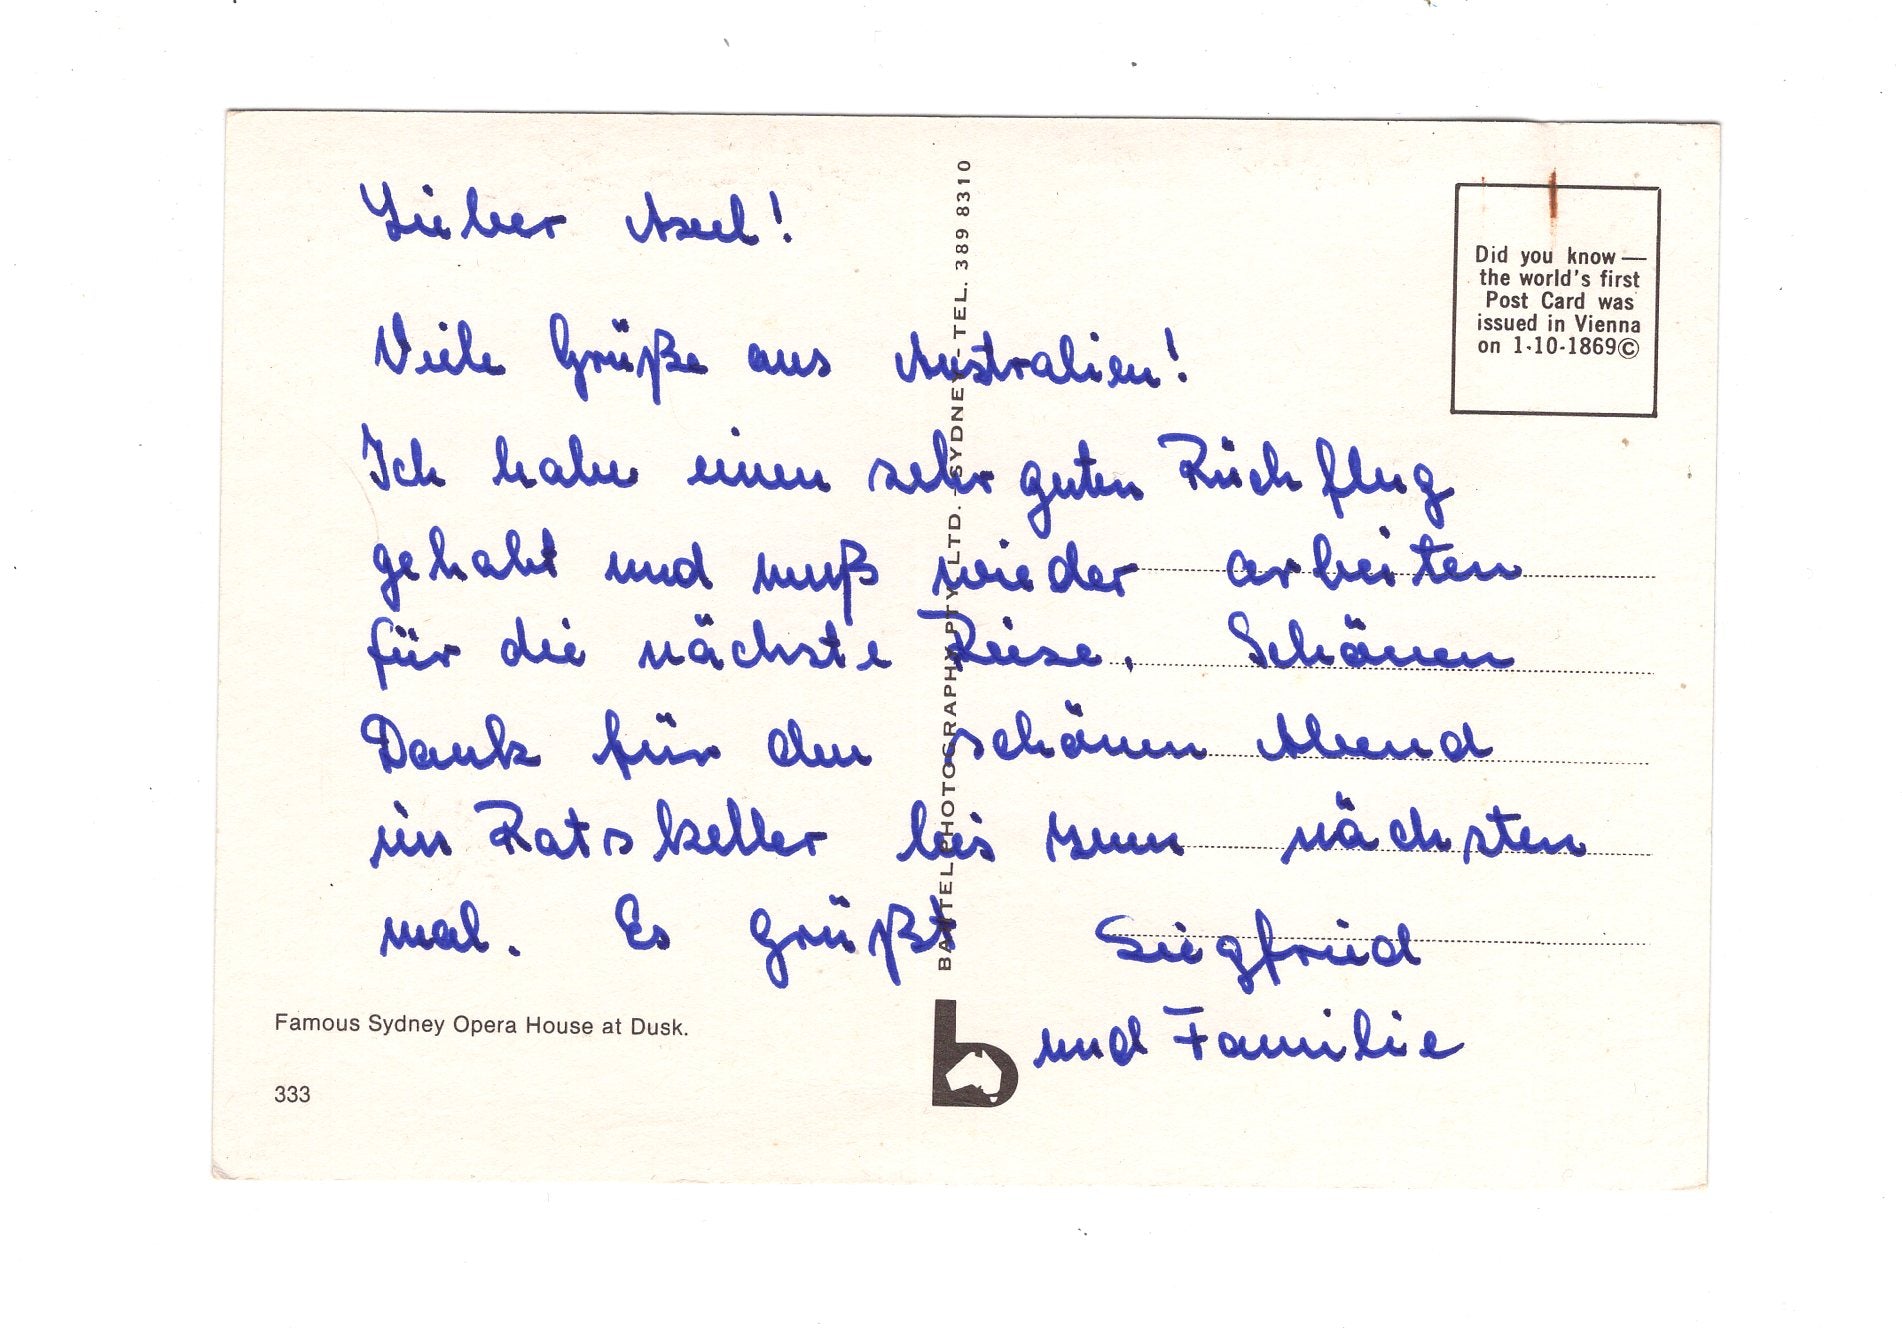 Lieber Axel!
Viele Grüße aus Australien!
Ich habe einen sehr guten Rückflug
gehabt und muß wieder arbeiten
für die nächste Reise. Schönen
Dank für den schönen Abend
im Ratskeller bis zum nächsten
mal. Es grüßt Siegfried
und Familie
Famous Sydney Opera House at Dusk.
333
BARTEL PHOTOGRAPHY PTY. LTD. - SYDNEY - TEL. 389 8310
b
Did you know —
the world's first
Post Card was
issued in Vienna
on 1·10·1869©